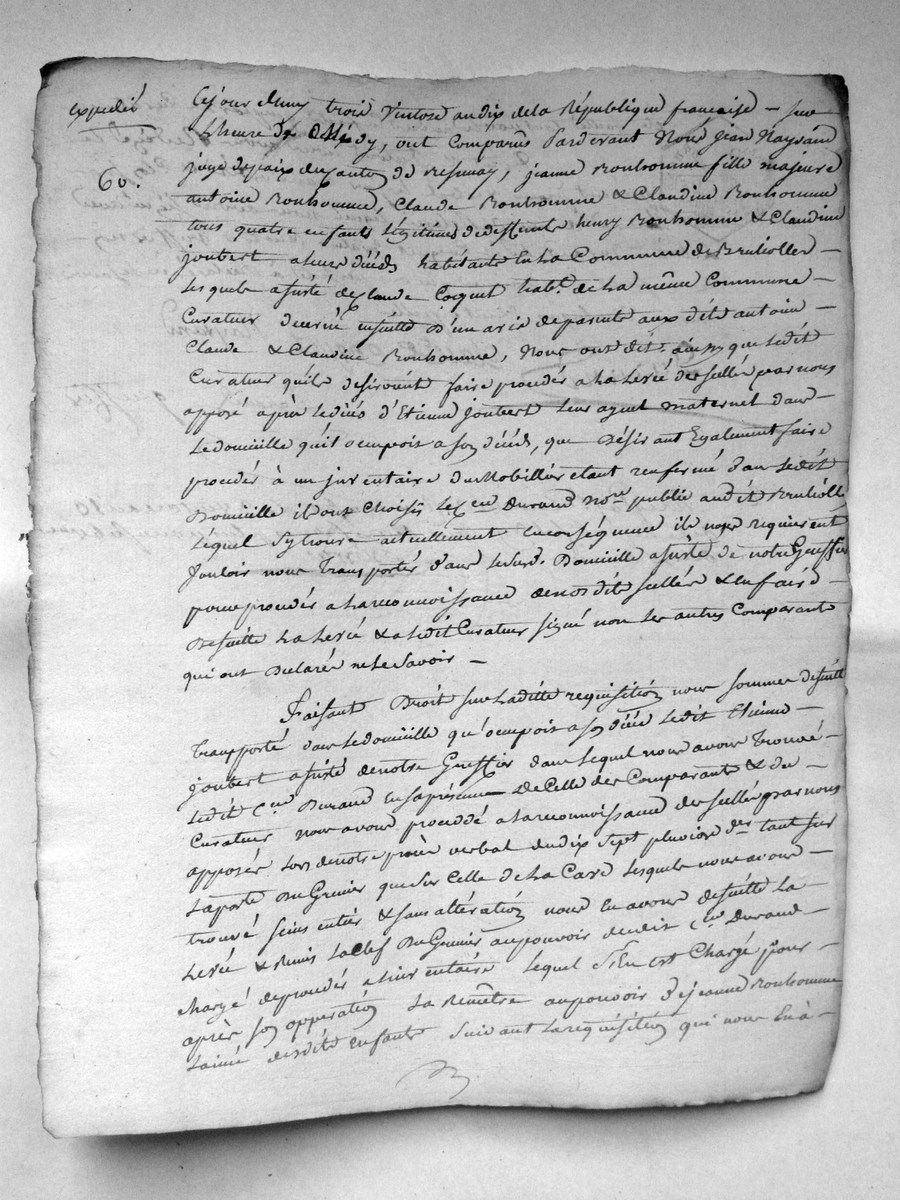 expedié
60.
Cejourdhuy trois Ventose an dix de la République française – sur
L'heure de Midy, ont Comparus Pardevant Nous Jean
juge de paix du Canton de, jeanne Bonhomme fille majeure
antoine Bonhomme, Claude Bonhomme & Claudine Bonhomme
tous quatre enfants Légitimes de deffunts henry Bonhomme & Claudine
joubert a leur décéds habitants En La Commune de Brulliolles –
Lesquels assisté de Claude Coquet habt. de La même Commune –
Curateur décerné ensuitte D'un avis de parents aux dits antoine
Claude & Claudine Bonhomme, Nous ont dit ainsy que Ledit
Curateur qu'ils desiroient faire procéder a La Levée des scellés par nous
apposé après Le décès d'Etienne joubert Leur ayeul maternel dans
Le domicille qu'il occupoit a son décéds, que Désirant Egalement faire
procéder à un inventaire du Mobillier etant renfermé dans Ledit
Domicille ils ont Choisis Le Cen Durand Nore public audit Brulliolles
Lequel s'y trouve actuellement en conséquence ils nous requierent
Vouloir nous transporter dans Le susd. Domicille assisté de notre Greffier
pour procéder a La reconnoissance de nos dits scellés & en faire
De suitte La Levée & a Ledit Curateur signé non Les autres Comparants
qui ont Déclaré ne Le savoir –
Faisant Droit sur Laditte requisition nous sommes de suitte
transporté dans Le domicille qu'occupoit a son décès Ledit Etienne –
joubert assisté de notre Greffier dans Lequel nous avons trouvé –
Ledit Cen Durand En sa présence De Celle des Comparants & du –
Curateur nous avons procédé a La reconnoissance des scellés par nous
apposés Lors de notre procès verbal du dix sept pluviose der tant sur
La porte Du Grenier que sur Celle de La Cave Lesquels nous avons –
trouvé seins entiers & sans altération nous en avons de suitte La
Levée & Remis La Clef Du Grenier au pouvoir dudit Cen Durand –
chargé de procéder a L'inventaire Lequel s'En est Chargé pour –
après son opperation La Remêtre au pouvoir de jeanne Bonhomme
L'ainée desdits enfants suivant La requisition qui nous En à –